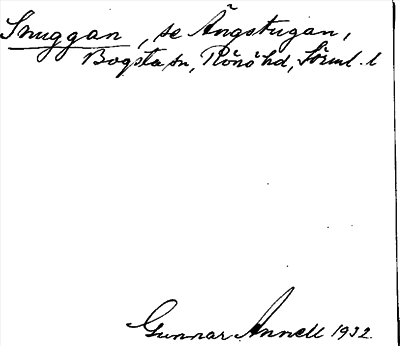 Snuggan, se Ängstugan,
Bogsta sn, Rönö hd, Sörml. l
Gunnar Annell 1932.